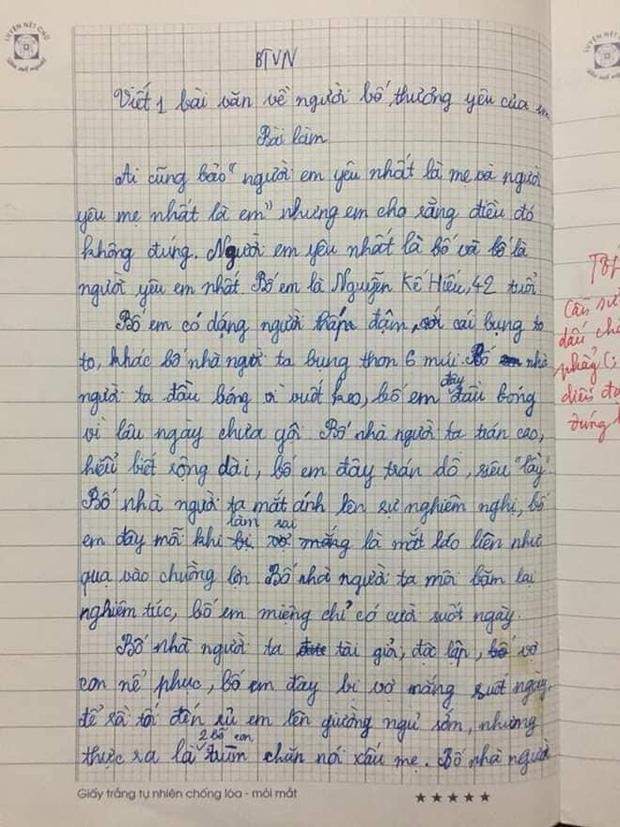 LUYỆN NÉT CHỮ
BTVN
Viết 1 bài văn về người bố thương yêu của em
Bài làm
Ai cũng bảo "người em yêu nhất là mẹ và người
yêu mẹ nhất là em" nhưng em cho rằng điều đó
không đúng. Người em yêu nhất là bố và bố là
người yêu em nhất. Bố em là Nguyễn Kế Hiếu, 42 tuổi
Bố em có dáng người thấp đậm, với cái bụng to
to, khác bố nhà người ta bụng thon 6 múi. Bố nhà
người ta đầu bóng vì vuốt keo, bố em đây đầu bóng
vì lâu ngày chưa gội. Bố nhà người ta trán cao,
hiểu biết rộng dài, bố em đây trán dồ, siêu "lầy".
Bố nhà người ta mắt ánh lên sự nghiêm nghị, bố
em đây mỗi khi làm sai là mắt láo liên như
qua vào chuồng lợn Bố nhà người ta môi bặm lại
nghiêm túc, bố em miệng chỉ có cười suốt ngày.
Bố nhà người ta tài giỏi, độc lập, vợ
con nể phục, bố em đây bị vợ mắng suốt ngày,
để rồi tối đến rủ em lên giường ngủ sớm, nhưng
thực ra là 2 bố con trùm chăn nói xấu mẹ. Bố nhà người
Giấy trắng tự nhiên chống lóa - mỏi mắt
★★★★★
Cần sử
dấu ch
diễn đạ
đúng